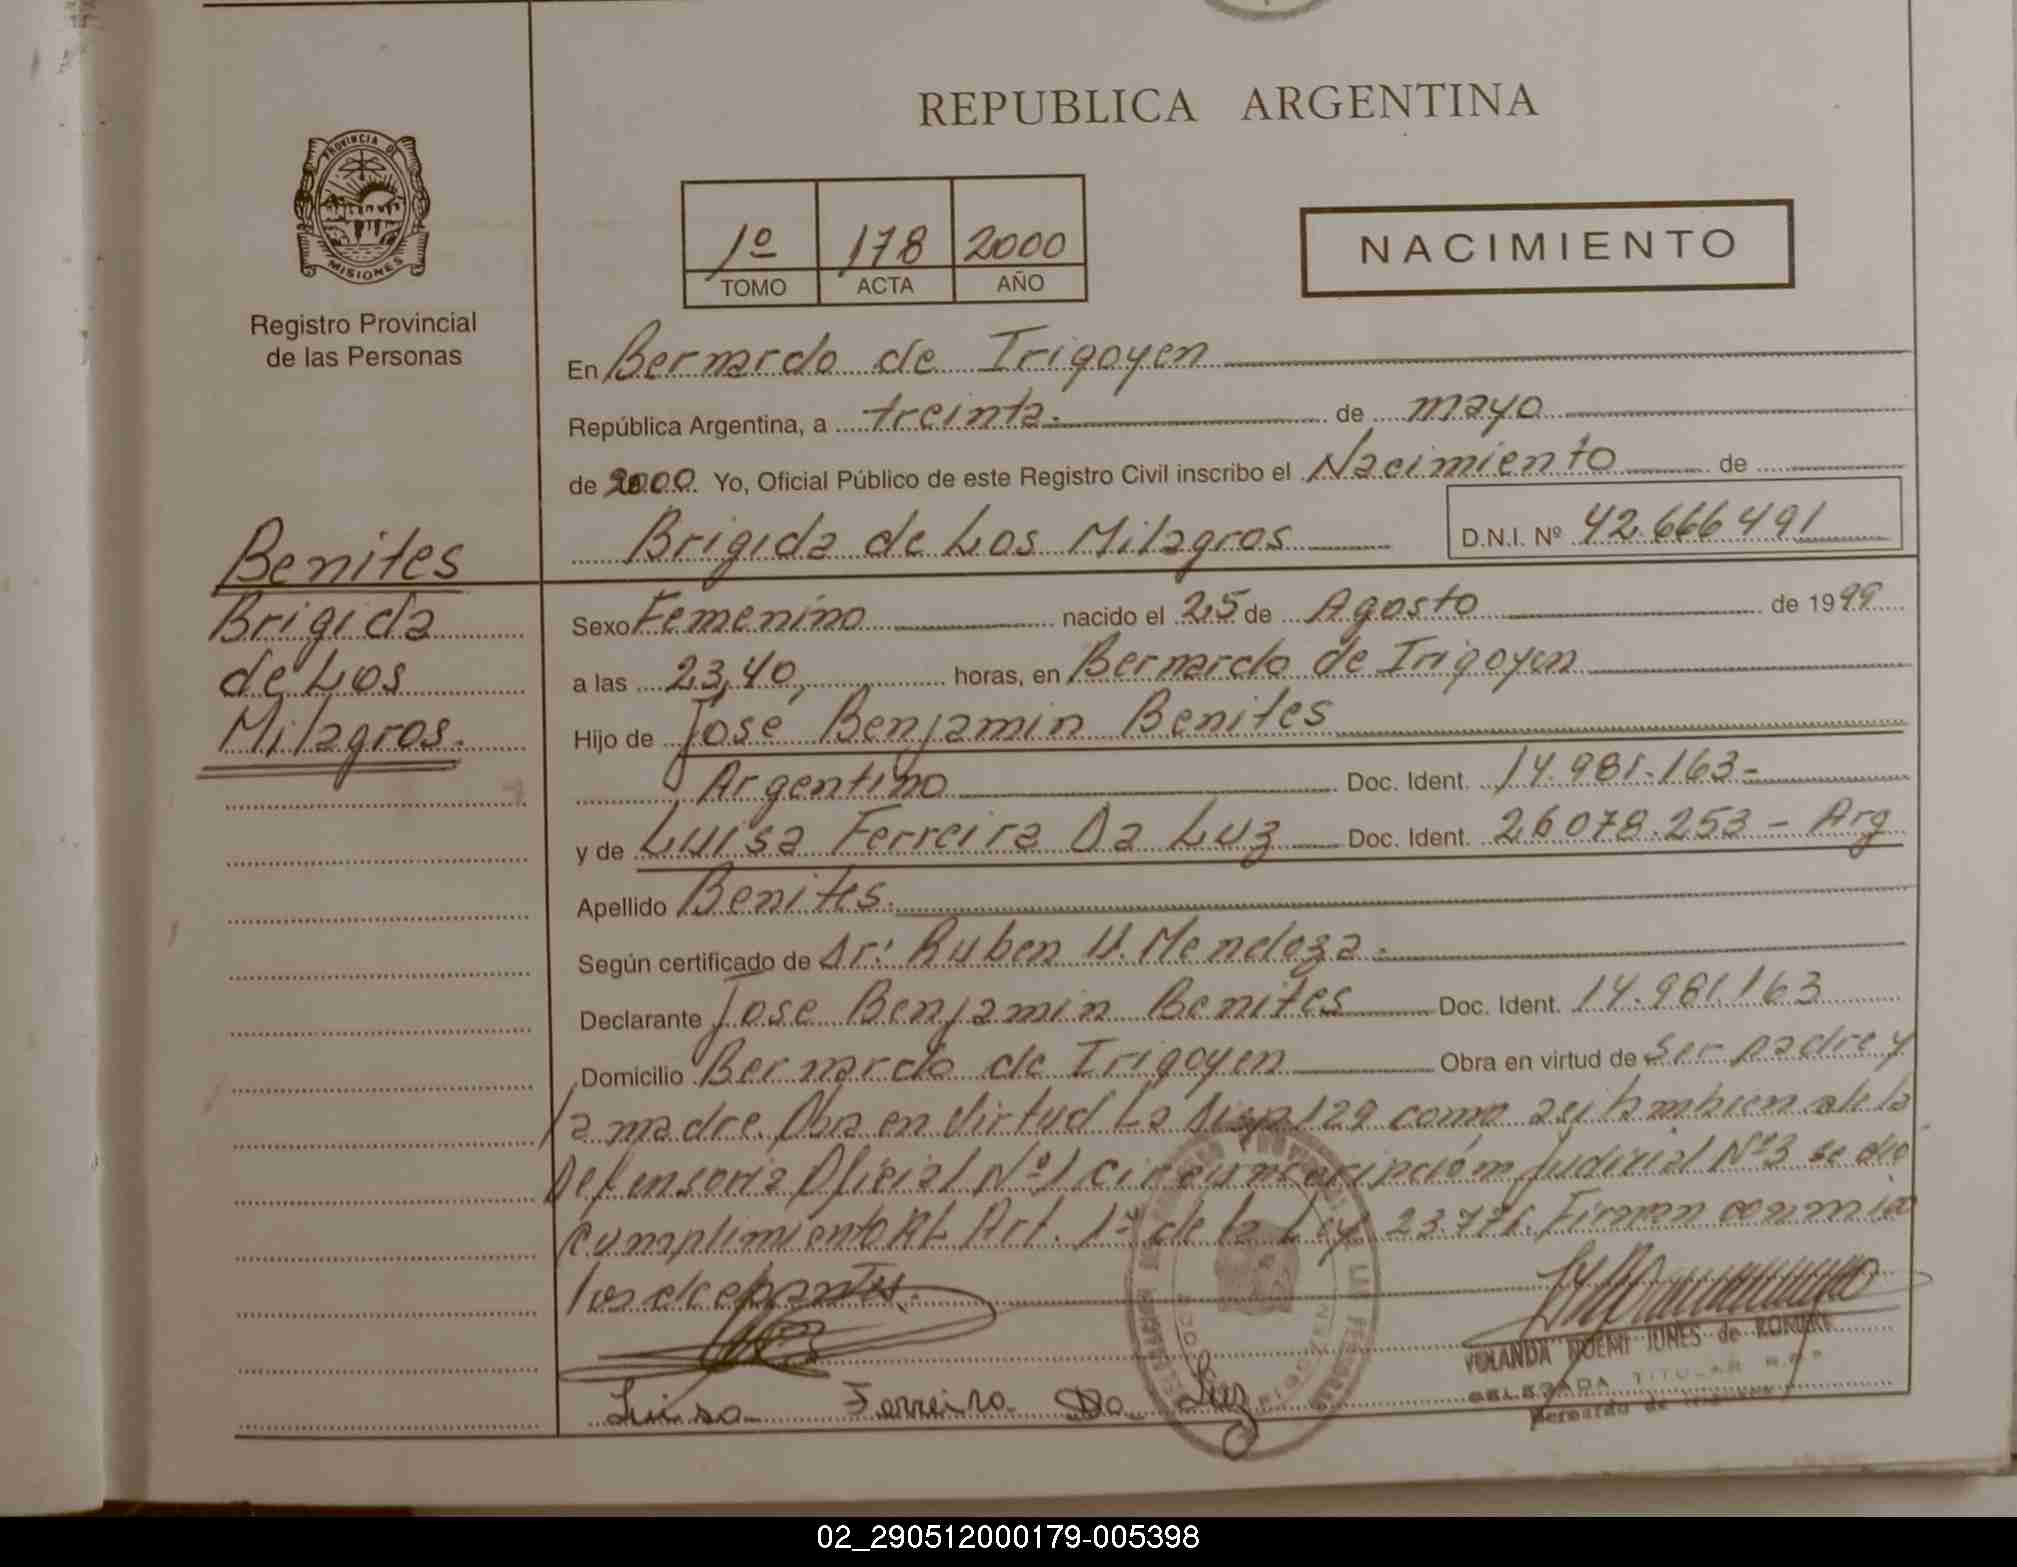 REPUBLICA ARGENTINA
PROVINCIA DE
MISIONES
Registro Provincial
de las Personas
1º 178 2000
TOMO ACTA AÑO
NACIMIENTO
En Bernardo de Irigoyen
República Argentina, a treinta. de mayo
de 2000. Yo, Oficial Público de este Registro Civil inscribo el Nacimiento de
Brigida de Los Milagros D.N.I. Nº 42.666491
Benites
Brigida
de Los
Milagros.
Sexo Femenino nacido el 25 de Agosto de 1999
a las 23,40, horas, en Bernardo de Irigoyen
Hijo de José Benjamin Benites
Argentino Doc. Ident. 14.981.163-
y de Luisa Ferreira Da Luz Doc. Ident. 26078.253 - Arg
Apellido Benites.
Según certificado de Dr: Ruben V. Mendoza.
Declarante Jose Benjamin Benites Doc. Ident. 14.981163
Domicilio Bernardo de Irigoyen Obra en virtud de Ser padre y
la madre. Obra en virtud La Disp 129 como asi tambien de la
Defensoria Oficial Nº1 Circunscripción Judicial Nº3 se dió
cumplimiento Al Art. 1º de la Ley 23.776. Firman conmigo
los
Luisa Ferreira Da Luz
YOLANDA NOEMI JUNES de
DELEGADA TITULAR R.P.P
Bernardo de Irigoyen
02_290512000179-005398